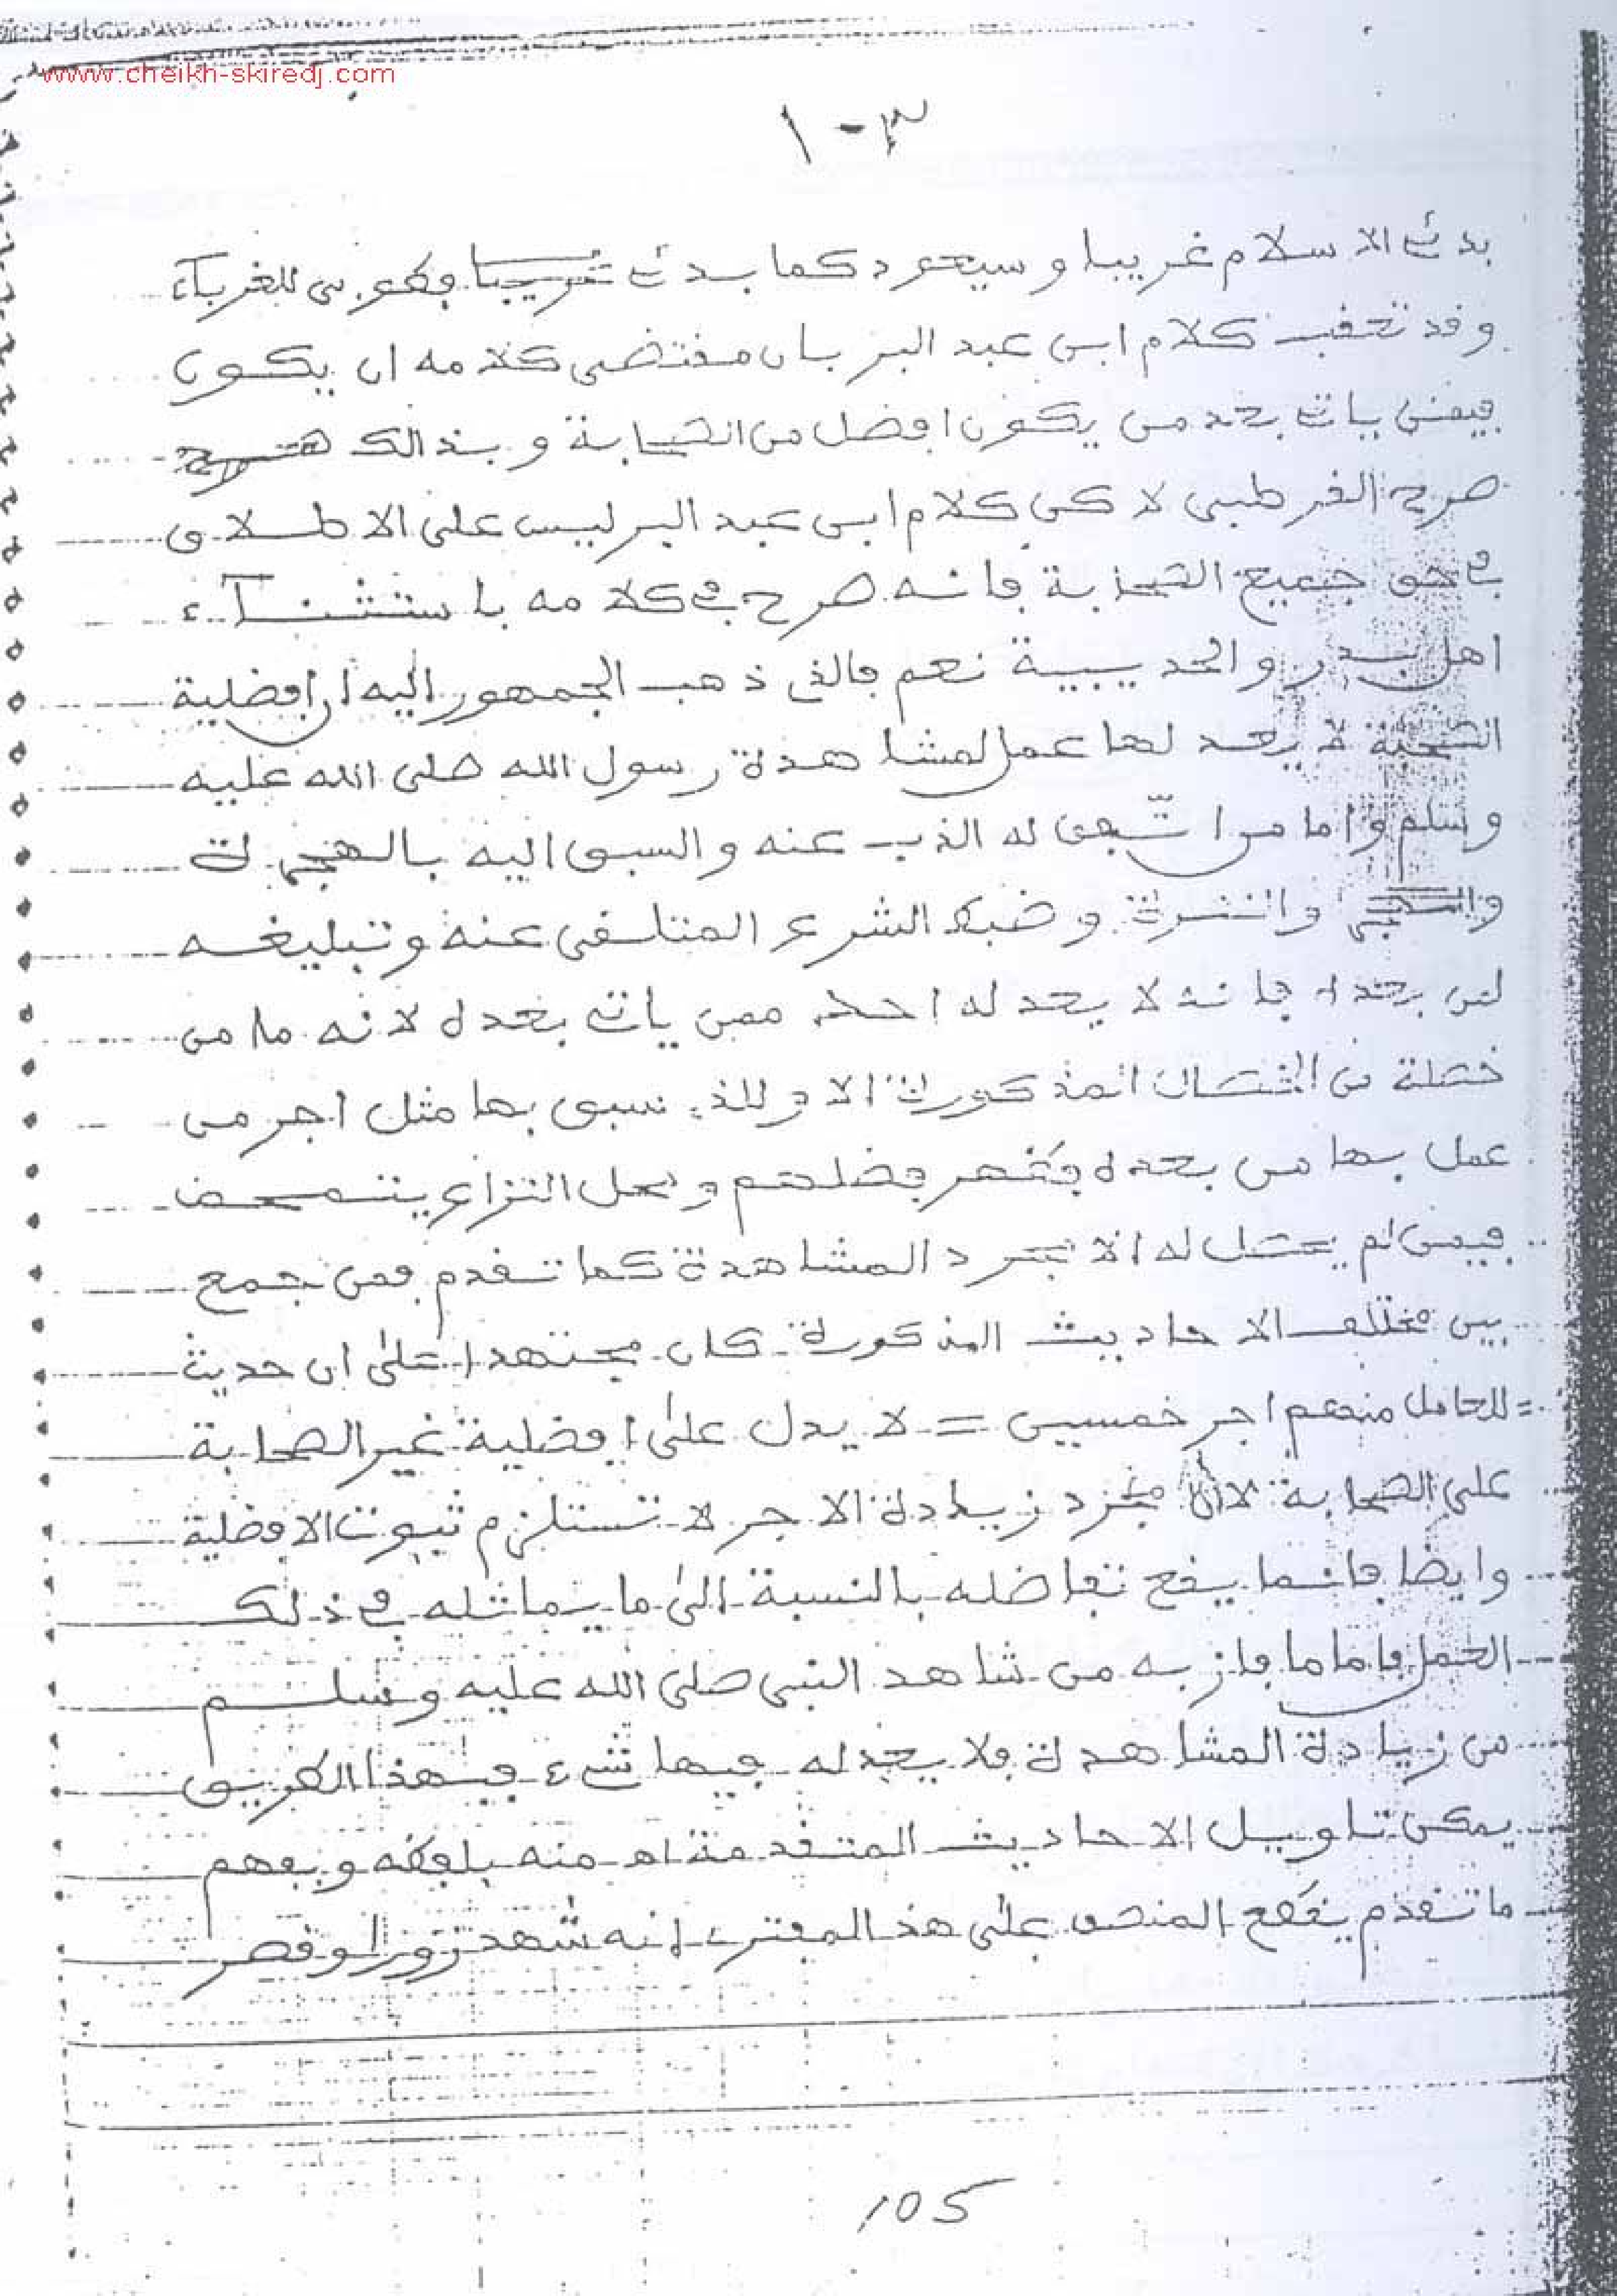 www.cheikh-skiredj.com
١-٣
بدئ الاسلام غريبا وسيعود كما بدئ غريبا فطوبى للغرباء
وقد تعقب كلام ابن عبد البر بان مقتضى كلامه ان يكون
فيمن ياتى بعد من يكون افضل من الصحابة وبذالك
صرح القرطبى لاكن كلام ابن عبد البر ليس على الاطلاق
فى حق جميع الصحابة فانه صرح فى كلامه باستثنآء
اهل بدر والحديبية نعم فالذى ذهب الجمهور اليه ان افضلية
الصحبة لا يعدلها عمل لمشاهدة رسول الله صلى الله عليه
وسلم واما من اتّفق له الذب عنه والسبق اليه بالهجرة
والنصرة وضبط الشرع المتلقى عنه وتبليغه
لمن بعده فانه لا يعدله احد ممن ياتى بعده لانه ما من
خصلة من الخصال المذكورة الا وللذى سبق بها مثل اجر من
عمل بها من بعده فظهر فضلهم ومحل النزاع يتمحض
فيمن لم يحصل له الا مجرد المشاهدة كما تقدم فمن جمع
بين مختلف الاحاديث المذكورة كان مجتهدا على ان حديث
= للعامل منهم اجر خمسين = لا يدل على افضلية غير الصحابة
على الصحابة لان مجرد زيادة الاجر لا تستلزم ثبوت الافضلية
وايضا فانما يقع تفاضله بالنسبة الى ما يماثله فى ذلك
العمل فاما ما فاز به من شاهد النبى صلى الله عليه وسلم
من زيادة المشاهدة فلا يعدله فيها شىء فبهذا الطريق
يمكن تاويل الاحاديث المتقدمة اهـ منه بلفظه وبفهم
ما تقدم يقطع المنصف على هذ المفترى انه شهد زورا وقصر
105